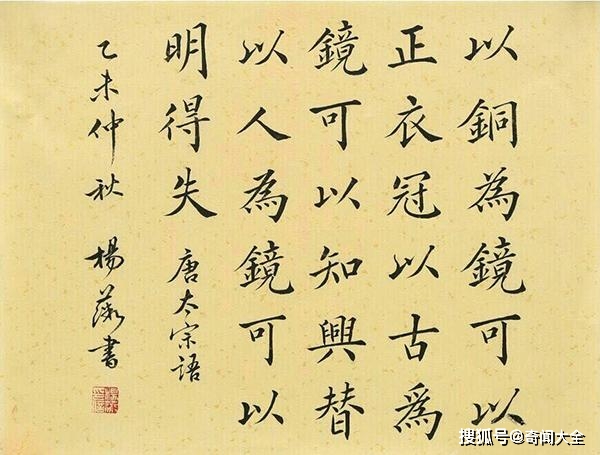 以銅為鏡可以
正衣冠以古爲
鏡可以知興替
以人為鏡可以
明得失 唐太宗語
乙未仲秋 楊 書
搜狐号@奇闻大全